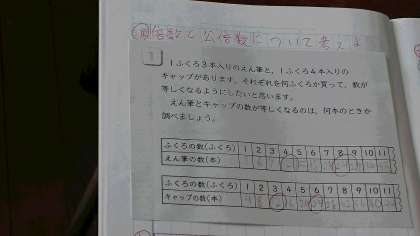 倍数と公倍数について考えよ
1
1ふくろ3本入りのえん筆と、1ふくろ4本入りの
キャップがあります。それぞれを何ふくろか買って、数が
等しくなるようにしたいと思います。
えん筆とキャップの数が等しくなるのは、何本のときか
調べましょう。
ふくろの数(ふくろ) 1 2 3 4 5 6 7 8 9 10 11
えん筆の数(本)
ふくろの数(ふくろ) 1 2 3 4 5 6 7 8 9 10 11
キャップの数(本)